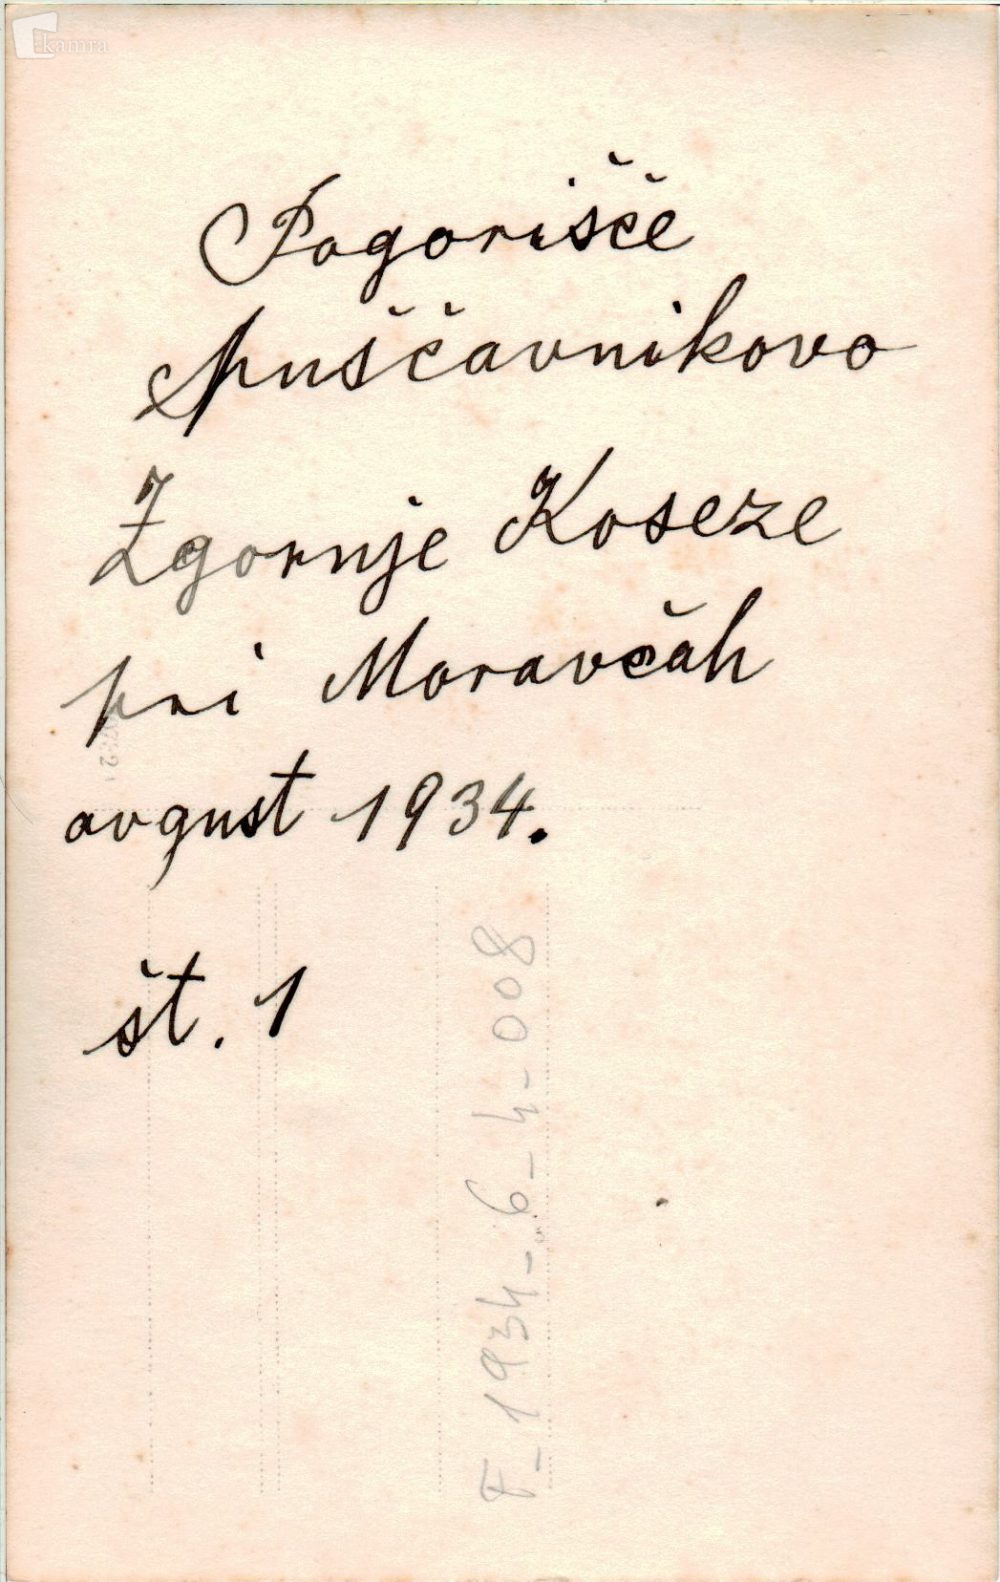 kamra
Pogorišče
Puščavnikovo
Zgornje Koseze
pri Moravčah
avgust 1934.
št. 1
F-1934-6-4-008